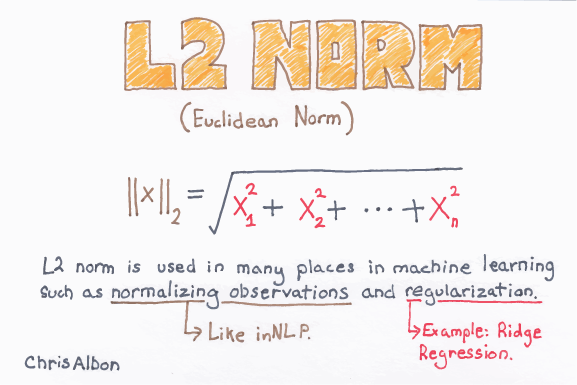 L2 NORM
(Euclidean Norm)
||x||₂ = √(X₁² + X₂² + ··· + Xₙ²)
L2 norm is used in many places in machine learning
such as normalizing observations and regularization.
Like in NLP.
Example: Ridge
Regression.
Chris Albon